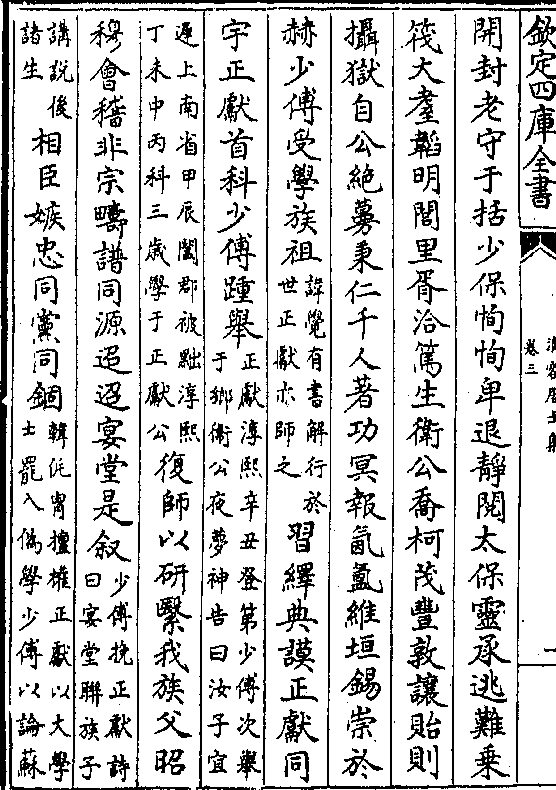 欽定四庫全書
清容居士集
卷三
一
開封老守于括少保恂恂卑退靜閲太保靈承逃難乗
筏大耋韜明閭里胥洽篤生衛公喬柯茂豐敦讓貽則
攝獄自公絶葷秉仁千人著功冥報氤氲維垣錫崇於
赫少傅受學族祖諱覺有書解行於世正獻亦師之習繹典謨正獻同
宇正獻首科少傅踵舉正獻淳熙辛丑登第少傅次舉于鄉衛公夜夢神告曰汝子宜
遲上南省甲辰闔郡被黜淳熙丁未中丙科三歳學于正獻公復師以研繫我族父昭
穆會稽非宗疇譜同源迢迢宴堂是叙少傅挽正獻詩曰宴堂聯族子
講説俊諸生相臣嫉忠同黨同錮韓侂胄擅權正獻以大學士罷入偽學少傅以論蘇